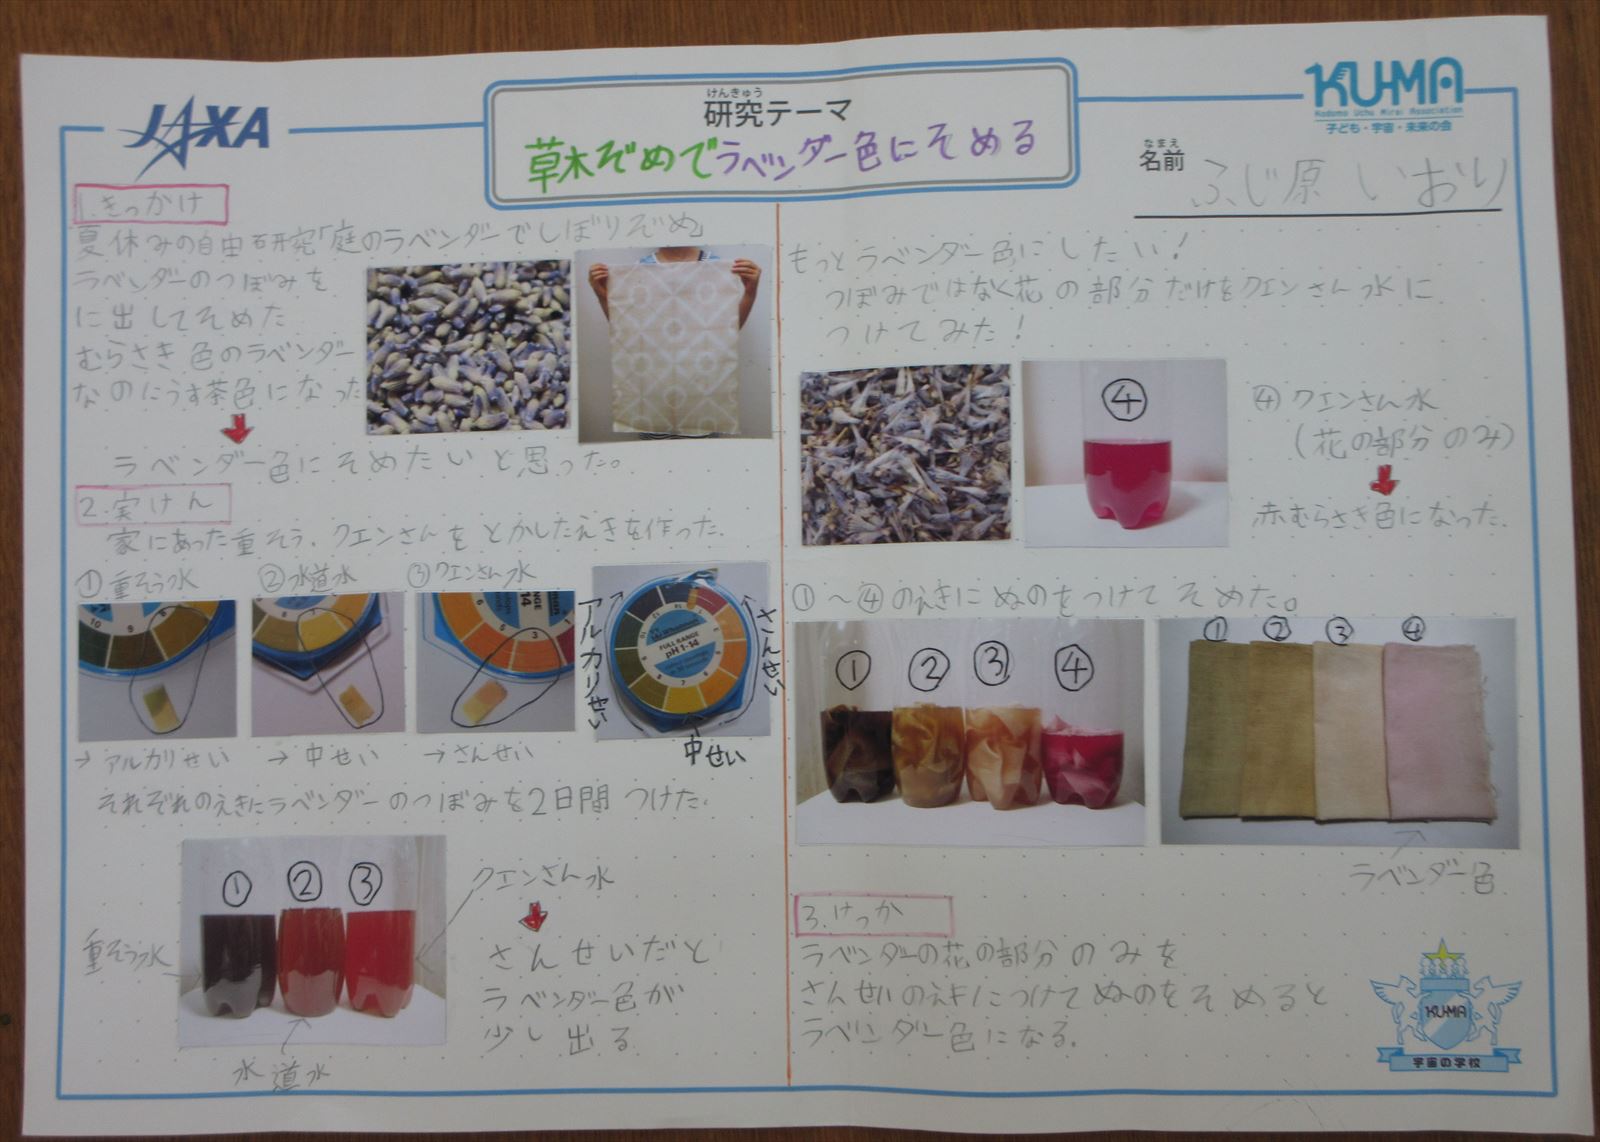 JAXA
けんきゅう
研究テーマ
草木ぞめでラベンダー色にそめる
KU-MA
Kodomo Uchu Mirai Association
子ども・宇宙・未来の会
なまえ
名前
ふじ原 いおり
1.きっかけ
夏休みの自由研究「庭のラベンダーでしぼりぞめ」
ラベンダーのつぼみを
に出してそめた
むらさき色のラベンダー
なのにうす茶色になった
ラベンダー色にそめたいと思った。
2.実けん
家にあった重そう、クエンさんをとかしたえきを作った。
①重そう水
②水道水
③クエンさん水
10 9 8
アルカリせい
さんせい
中せい
FULL RANGE
pH 1-14
→アルカリせい
→中せい
→さんせい
それぞれのえきにラベンダーのつぼみを2日間つけた。
① ② ③
重そう水
水道水
クエンさん水
さんせいだと
ラベンダー色が
少し出る
もっとラベンダー色にしたい!
つぼみではなく花の部分だけをクエンさん水に
つけてみた!
④
④クエンさん水
(花の部分のみ)
赤むらさき色になった。
①~④のえきにぬのをつけてそめた。
① ② ③ ④
① ② ③ ④
ラベンダー色
3.けっか
ラベンダーの花の部分のみを
さんせいのえきにつけてぬのをそめると
ラベンダー色になる。
KU-MA
宇宙の学校